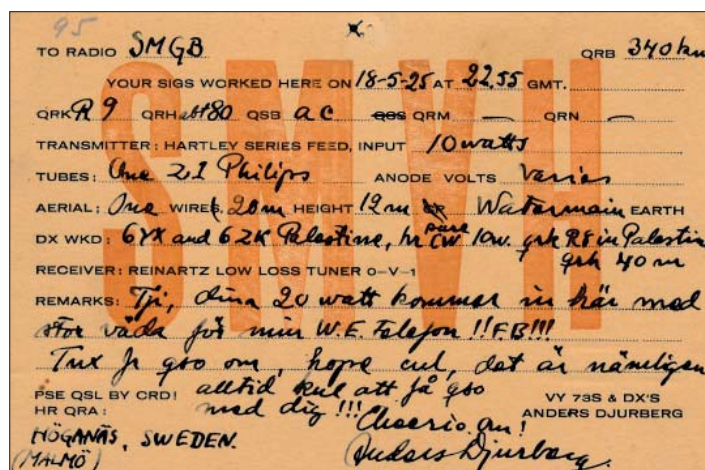 95
TO RADIO SMGB QRB 340 km
SMVH
YOUR SIGS WORKED HERE ON 18-5-25 AT 22,55 GMT.
QRK R 9 QRH abt 80 QSB ac QSS QRM — QRN —
TRANSMITTER: HARTLEY SERIES FEED, INPUT 10 watts
TUBES: One Z1 Philips ANODE VOLTS Varias
AERIAL: One WIRES 20 m HEIGHT 12 m Watermain EARTH
DX WKD: 6YX and 6ZK Palestine, hr pure CW 10w. qrk R8 in Palestin
qrh 40 m
RECEIVER: REINARTZ LOW LOSS TUNER 0-V-1
REMARKS: Tji, dina 20 watt kommer in här med
stor våda för min W.E. Telefon!! F.B!!!
Tnx fr qso om, hope cul, det är nämligen
PSE QSL BY CRD! alltid kul att få qso
HR QRA: med dig!!! VY 73S & DX'S
Cheerio om! ANDERS DJURBERG
HÖGANÄS, SWEDEN.
(MALMÖ) Anders Djurberg.